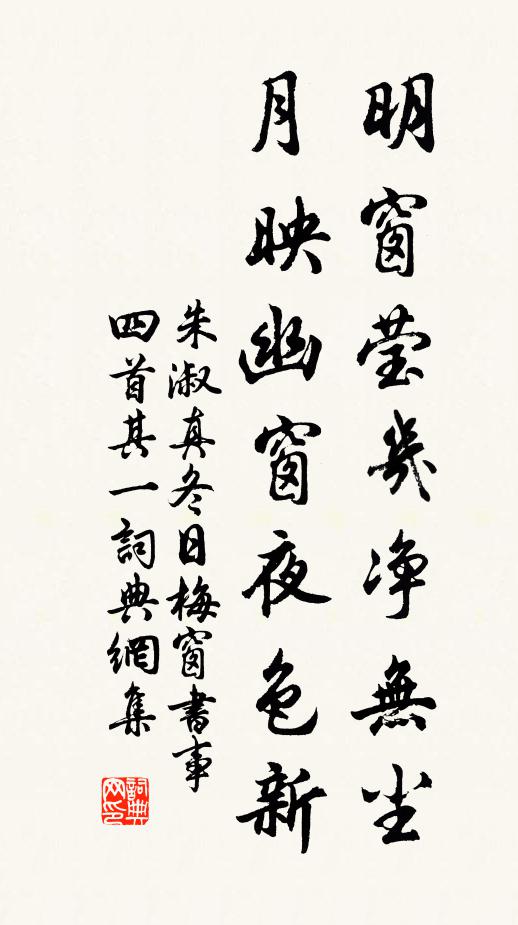 明窗瑩几净無尘
月映幽窗夜色新
朱淑真冬日梅窗書事
四首其一詞典網集
詞典网印